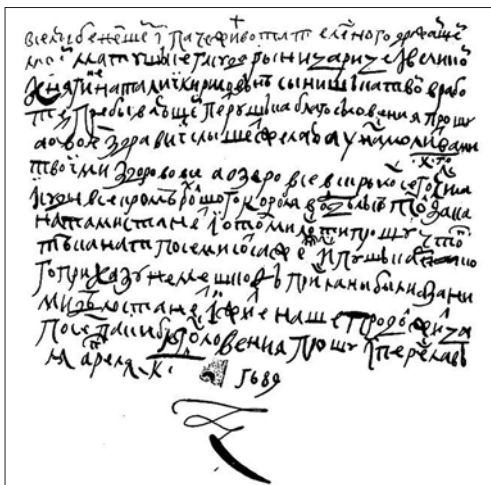 вселюбезнешеi i паче живота телесного дражаiшеi
моеi матушъке гасударыни царице i великоi
кнегине наталиi кириловне сынишъка твоi в рабо
те пребывающеi петрушъка благословения прошу
а о твое здравиi слышеть желаю а у нас молитвами
твоiми здорово все а озеро все вскрылось сего к числа
i суды все кроме большого корабля в отделке толко за кана
натами станет i о том милости прошу чтоб
те канаты по семисот сажен iс пушкарского
приказу не мешкав присланы были а за ними
дело станет i житие наше продолжица
посем паки благословения прошу iс переславля
апреля к
1689